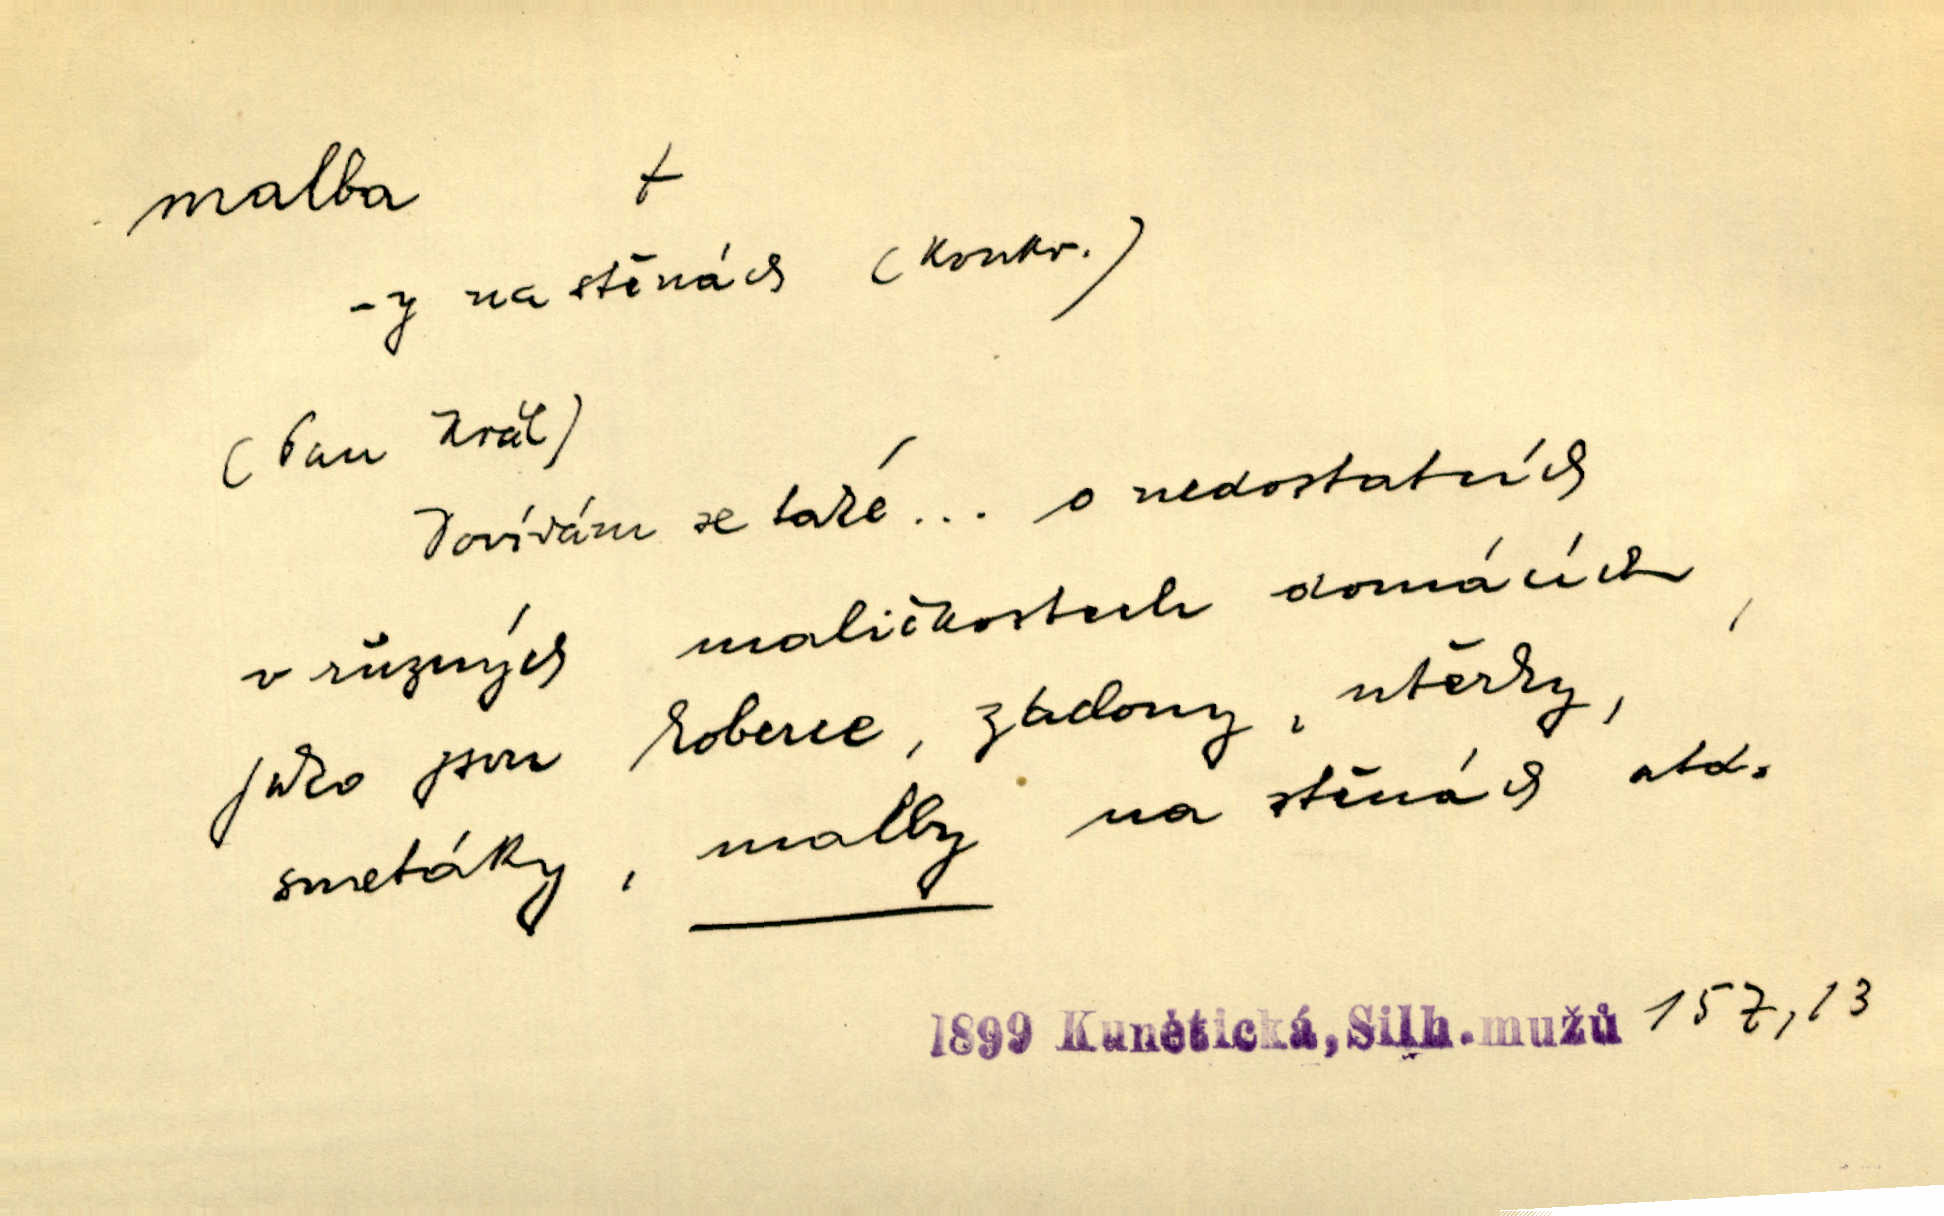 malba +
-y na stěnách (konkr.)
(Pan Král)
Dovídám se také ... o nedostatcích
v různých maličkostech domácích,
jako jsou koberce, záclony, utěrky,
smetáky, malby na stěnách atd.
1899 Kunětická, Silh. mužů 157,13